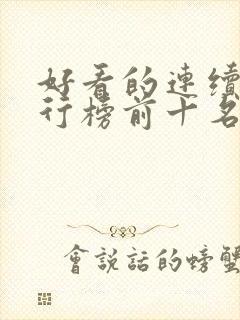 好看的連續
行榜前十名
會說話的螃蟹